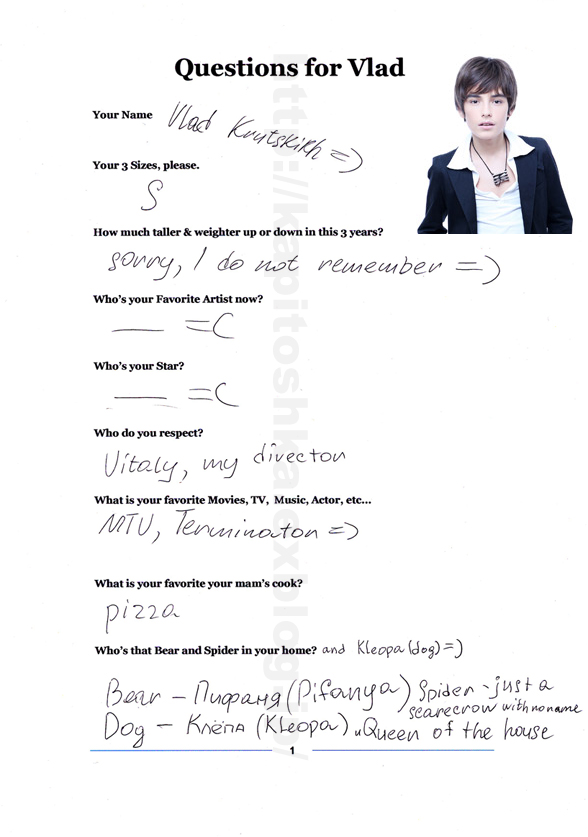 Questions for Vlad
Your Name Vlad Krutskikh =)
Your 3 Sizes, please.
S
How much taller & weighter up or down in this 3 years?
sorry, I do not remember =)
Who's your Favorite Artist now?
— =(
Who's your Star?
— =(
Who do you respect?
Vitaly, my director
What is your favorite Movies, TV, Music, Actor, etc...
MTV, Terminator =)
What is your favorite your mam's cook?
pizza
Who's that Bear and Spider in your home? and Kleopa (dog) =)
Bear – Пифаня (Pifanya) Spider - just a
scarecrow with no name
Dog – Клёпа (Kleopa) „Queen of the house
1